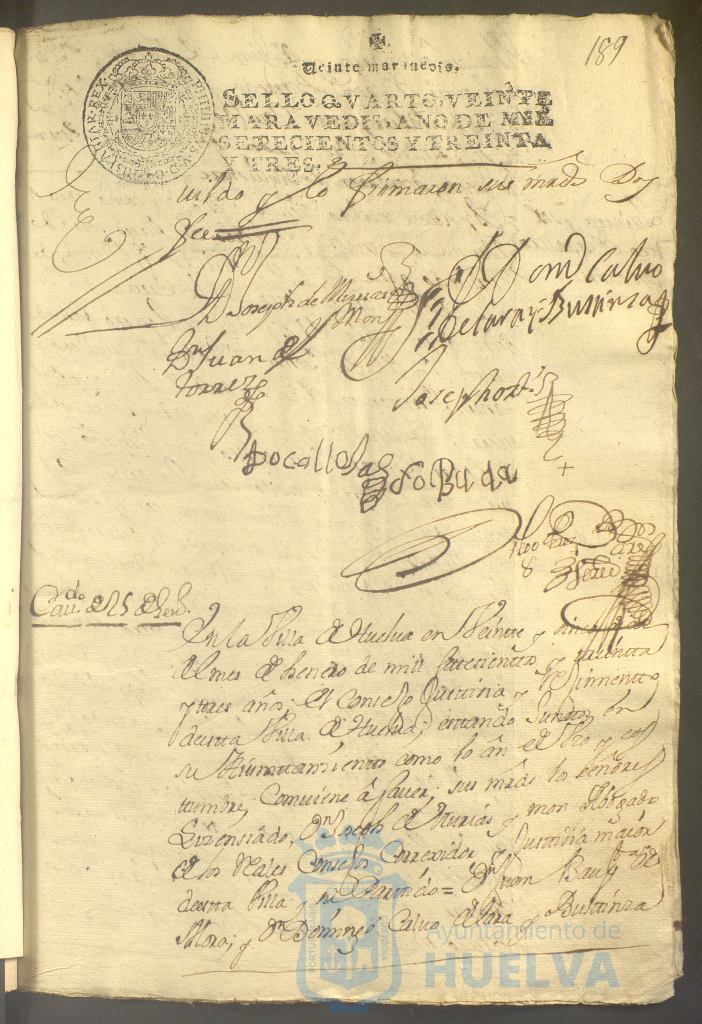 189
Veinte maravedis.
SELLO QVARTO, VEINTE
MARAVEDIS, AÑO DE MIL
SETECIENTOS Y TREINTA
Y TRES.
uildo y lo firmaron sus mrds Doy
fee
Dn Joseph de Murias
y Mon
Domo Calvo
de Lara y Bustinza
Dn Juan de
torres
Joseph orts
Cauido. de 25 de Henº.
En la Villa de Huelva en Veinte y cinco de
el mes de henero de mil settecientos y treinta
y tres años; el Consejo Justicia y Reximiento
de esta Villa de Huelva, estando Juntos en
su Aiuntamiento como lo an de Vso y cos
tumbre, Comviene â saver; sus mrds los señores
Lizensiado, Dn Joseph de Murias y mon Abogado
de los Reales Consejos Correxidor y Justicia maior
de esta Villa y su Partido = Dn Juan Baupta de
Mora; y Dn Domingo Calvo de Lara y Bustinza
Ayuntamiento de
HUELVA